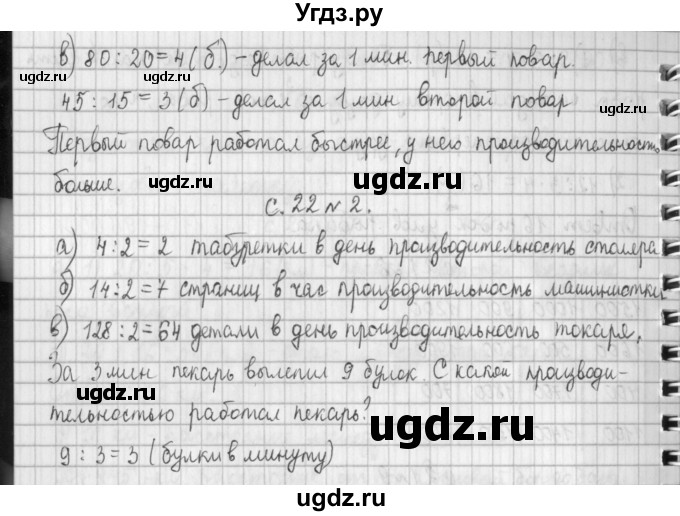 Угдз.ру
в) 80 : 20 = 4 (б.) – делал за 1 мин. первый повар.
ugdz.ru ugdz.ru
45 : 15 = 3 (б) – делал за 1 мин второй повар
Первый повар работал быстрее, у него производительность
больше.
ugdz.ru ugdz.ru ugdz.ru
с. 22 № 2.
а) 4 : 2 = 2 табуретки в день производительность столяра
б) 14 : 2 = 7 страниц в час производительность машинистки
в) 128 : 2 = 64 детали в день производительность токаря.
ugdz.ru ugdz.ru
За 3 мин пекарь вылепил 9 булок. С какой производи-
тельностью работал пекарь?
ugdz.ru
9 : 3 = 3 (булки в минуту)
ugdz.ru ugdz.ru